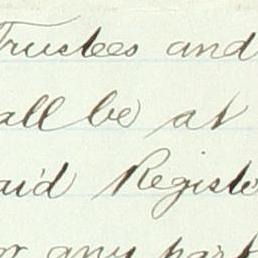 Trustees and
all be at
aid Registe
or any part